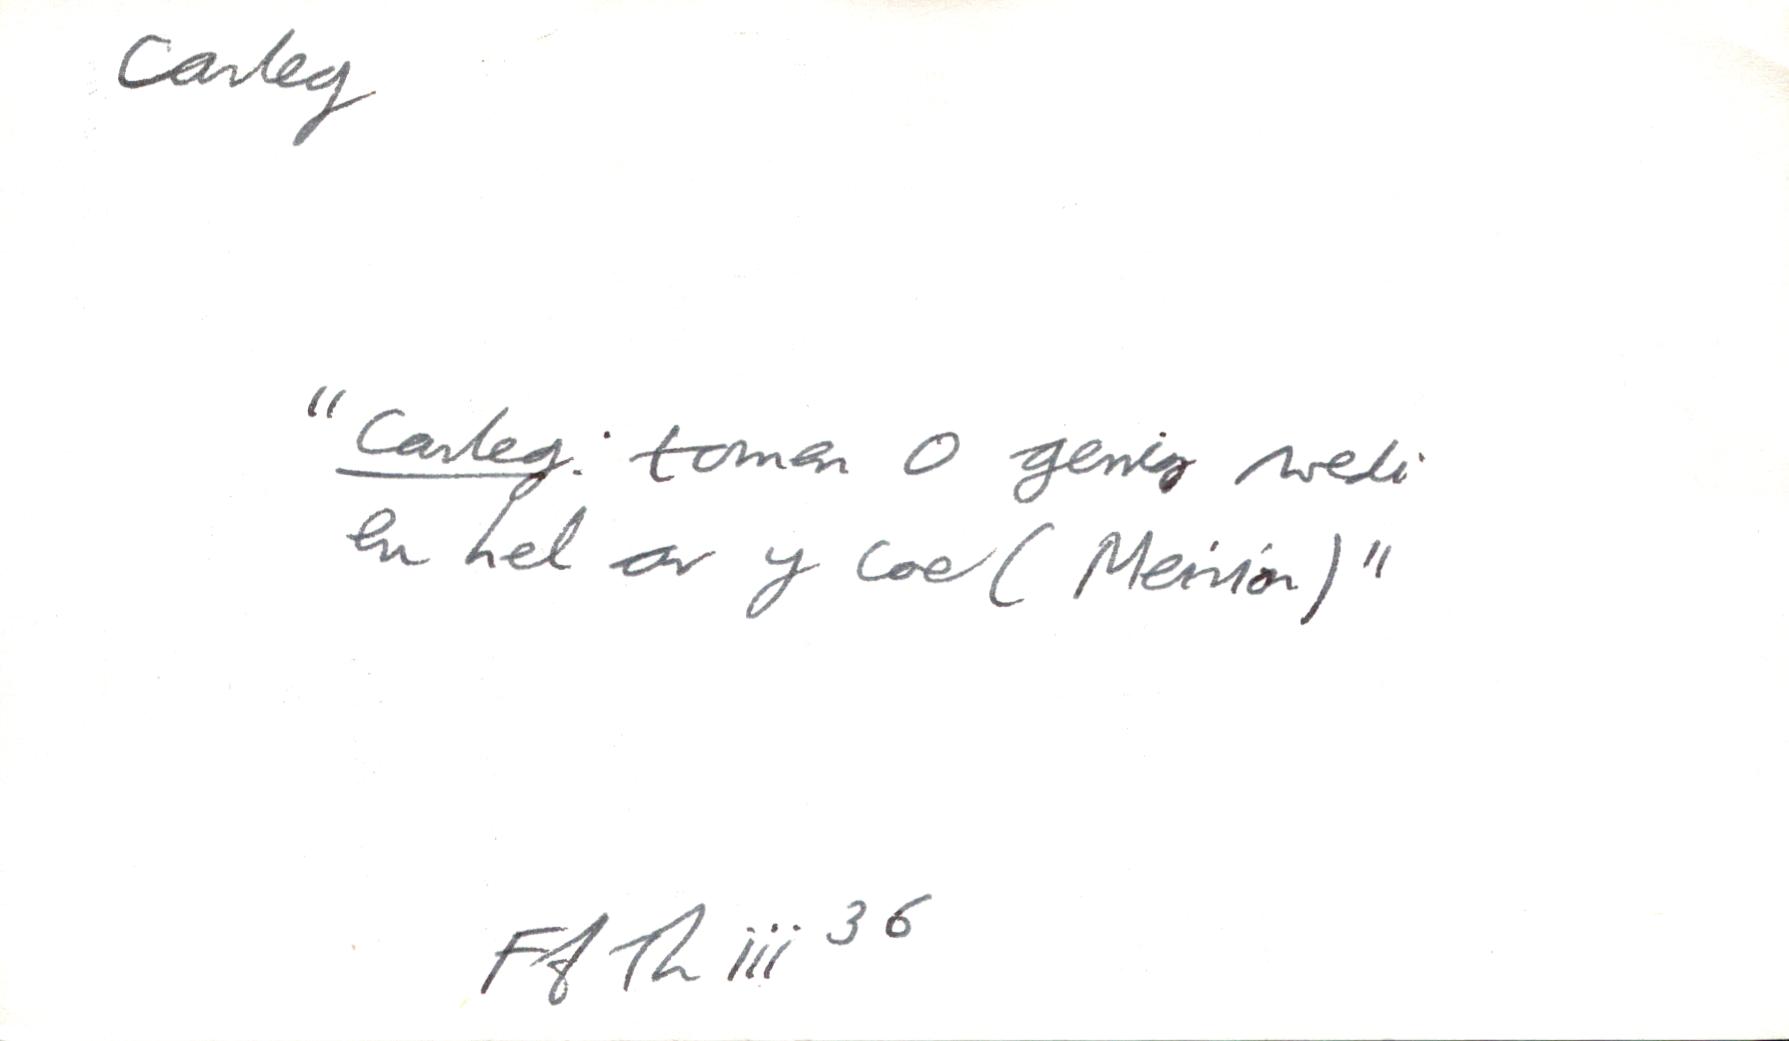 Carleg
"Carleg: tomen o gerrig wedi
eu hel ar y cae (Meirion)"
Ff Th iii 36